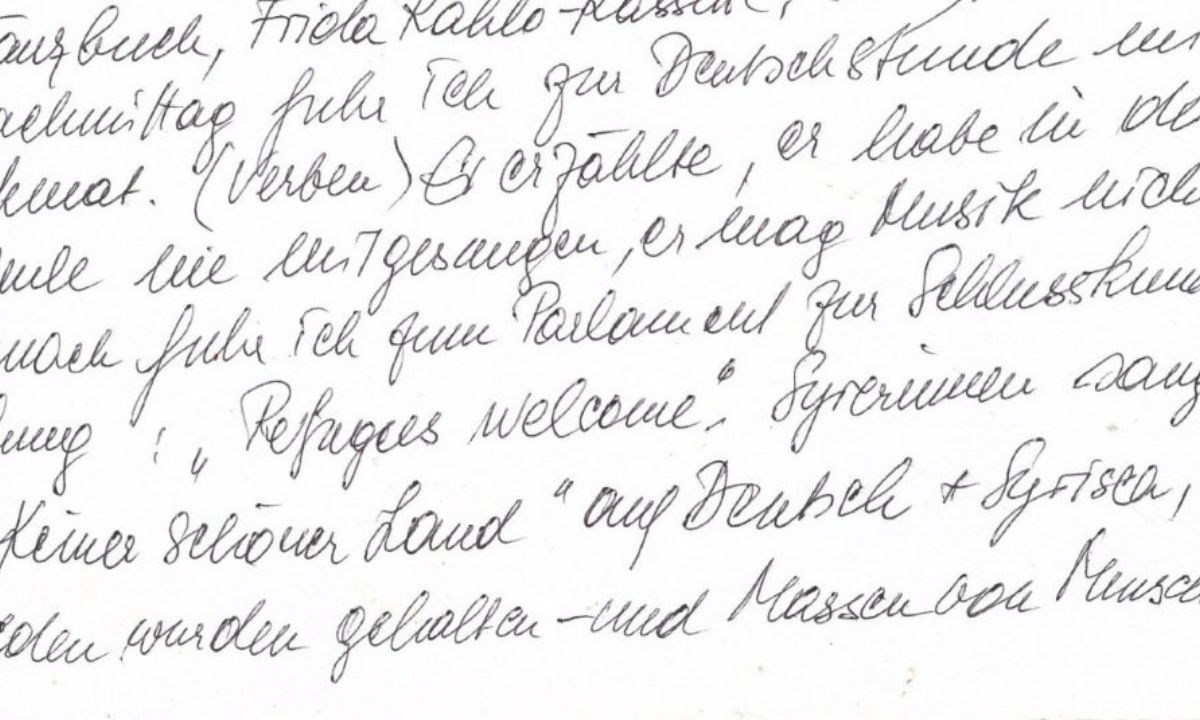 anzbuch, Frida Kahlo-Kassette,
achmittag fuhr ich zur Deutschstunde mit
kmat. (Verben) Er erzählte, er habe in de
hule nie mitgesungen, er mag Musik nich
nach fuhr ich zum Parlament zur Schlusskund
bung: „Refugees welcome." Syrerinnen sang
Keiner schöner Land" auf Deutsch + Syrisch,
eden wurden gehalten - und Massen von Mensch